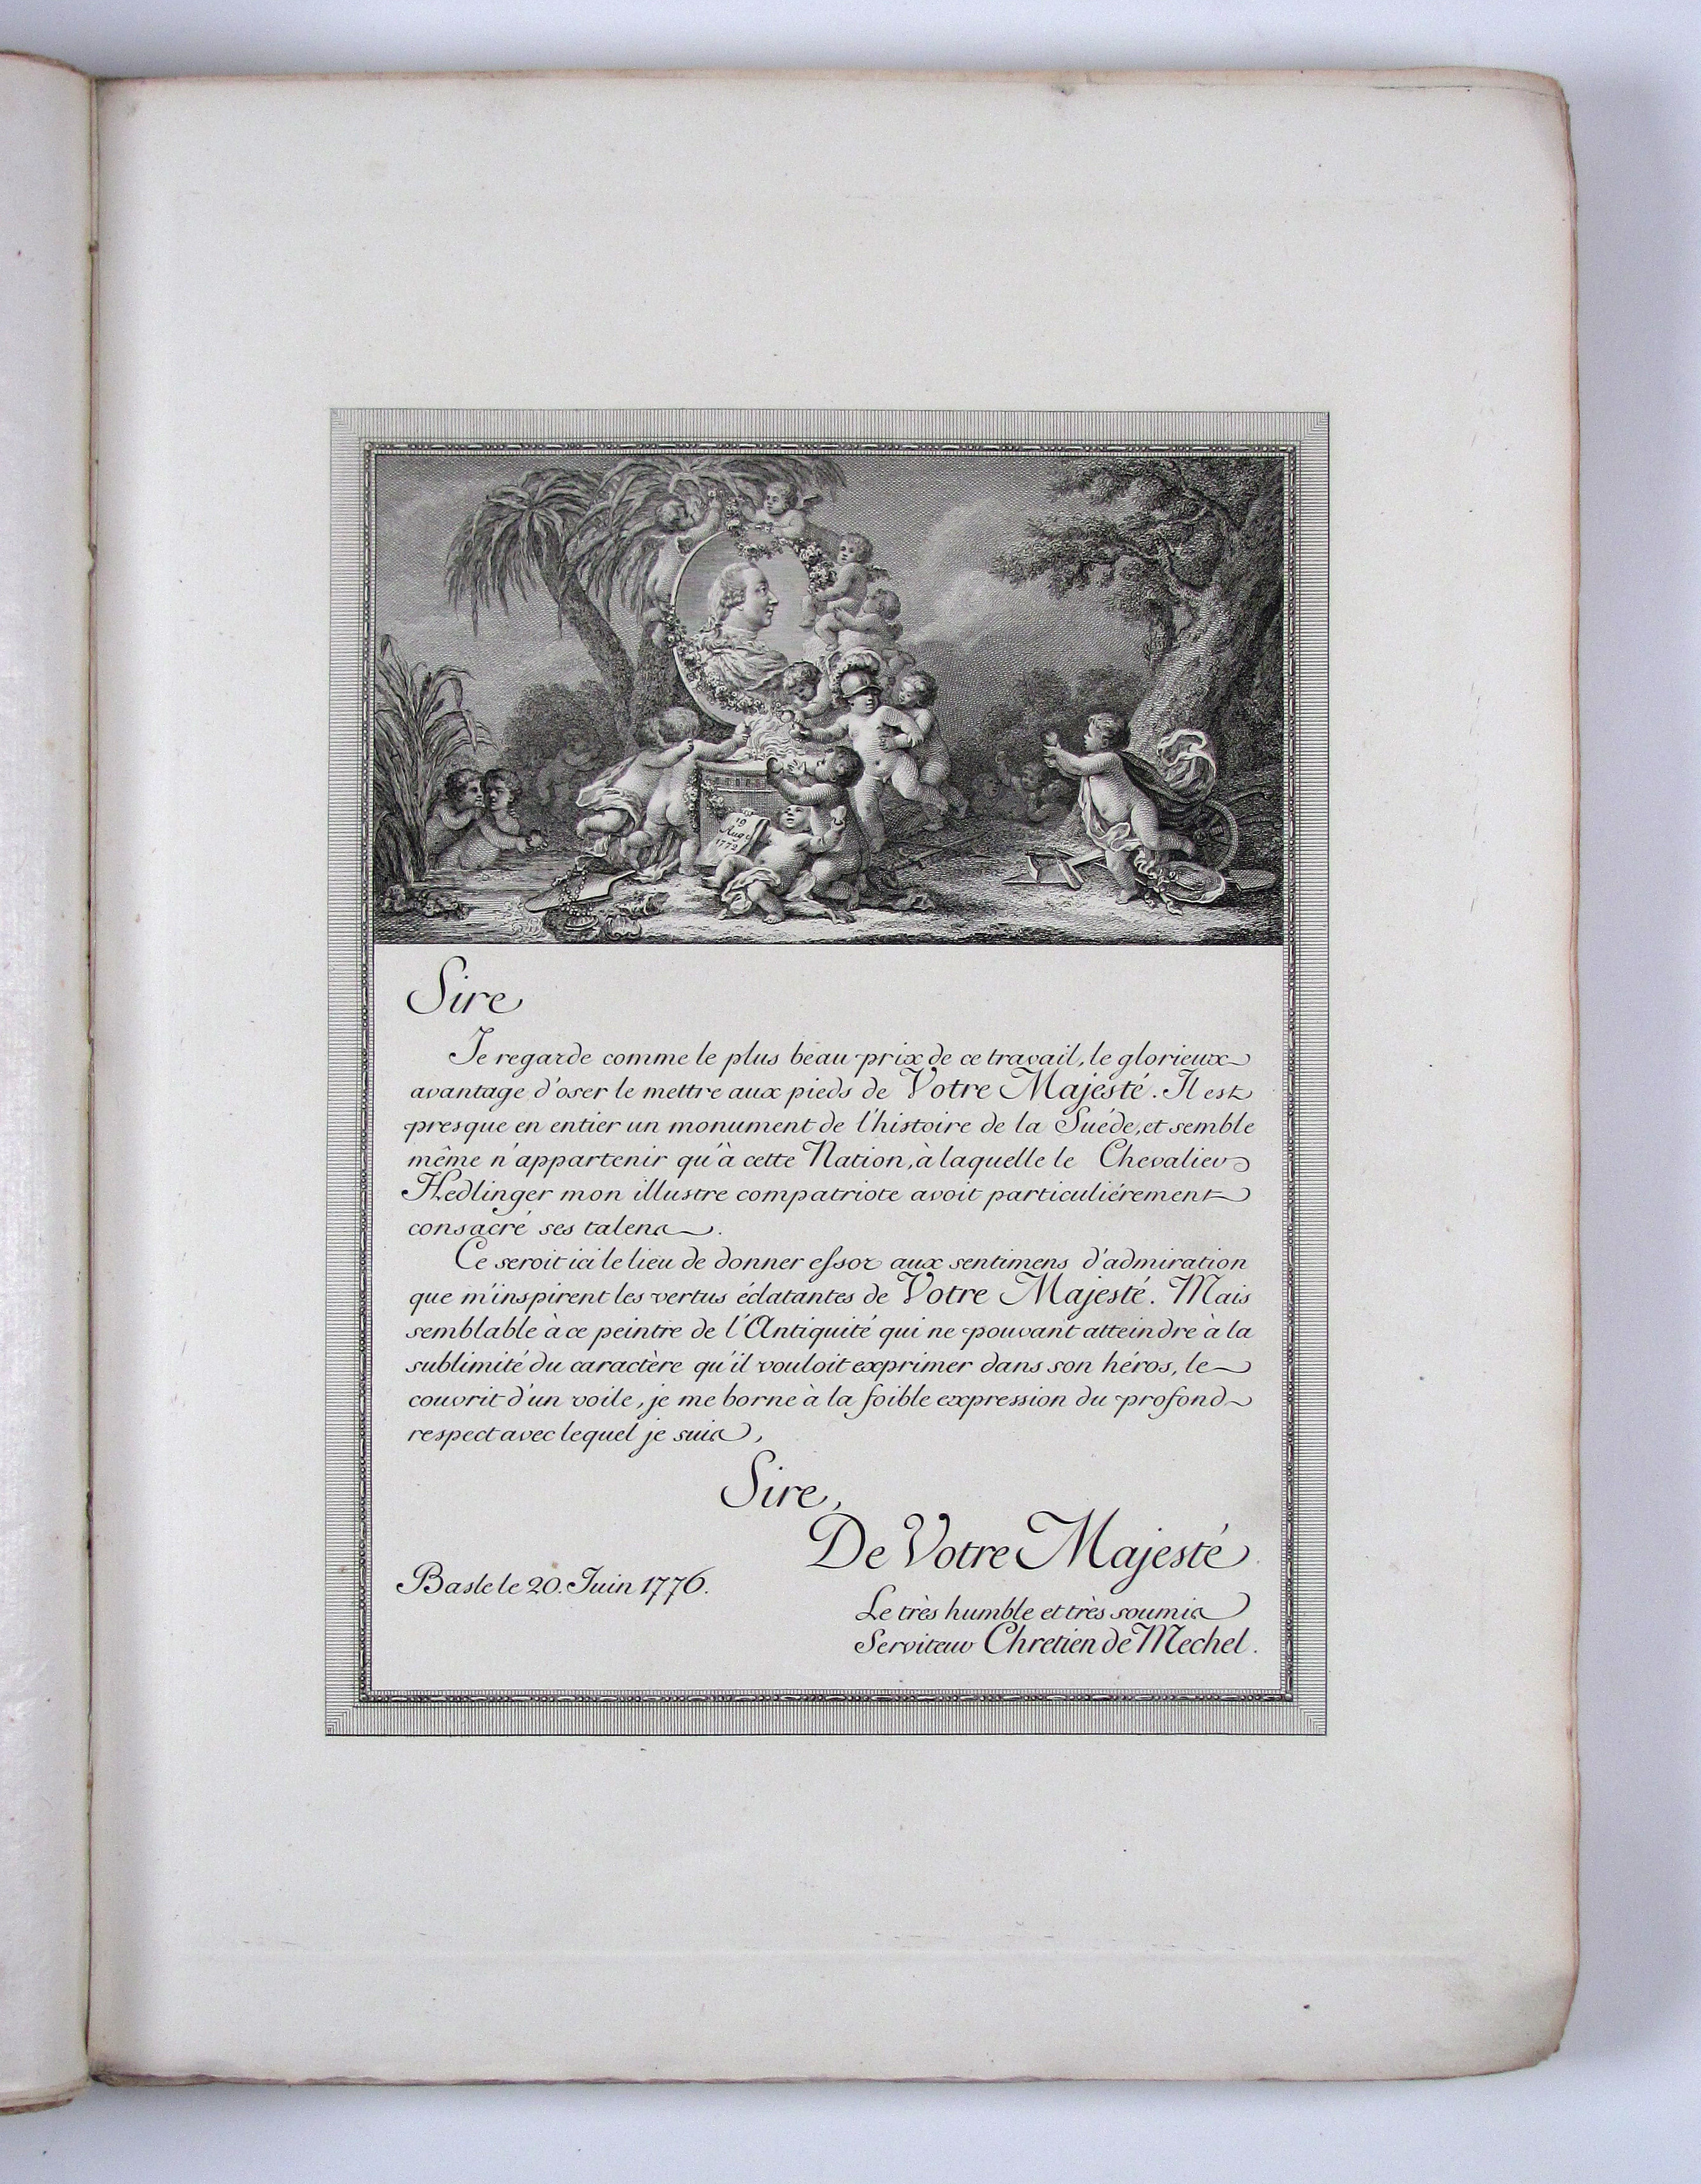 19
Aug.
1772
Sire
Je regarde comme le plus beau prix de ce travail, le glorieux
avantage d'oser le mettre aux pieds de Votre Majesté. Il est
presque en entier un monument de l'histoire de la Suéde, et semble
même n'appartenir qu'à cette Nation, à laquelle le Chevalier
Hedlinger mon illustre compatriote avoit particuliérement
consacré ses talens.
Ce seroit ici le lieu de donner essor aux sentimens d'admiration
que m'inspirent les vertus éclatantes de Votre Majesté. Mais
semblable à ce peintre de l'Antiquité qui ne pouvant atteindre à la
sublimité du caractère qu'il vouloit exprimer dans son héros, le
couvrit d'un voile, je me borne à la foible expression du profond
respect avec lequel je suis,
Sire,
De Votre Majesté
Basle le 20. Juin 1776.
Le très humble et très soumis
Serviteur Chretien de Mechel.